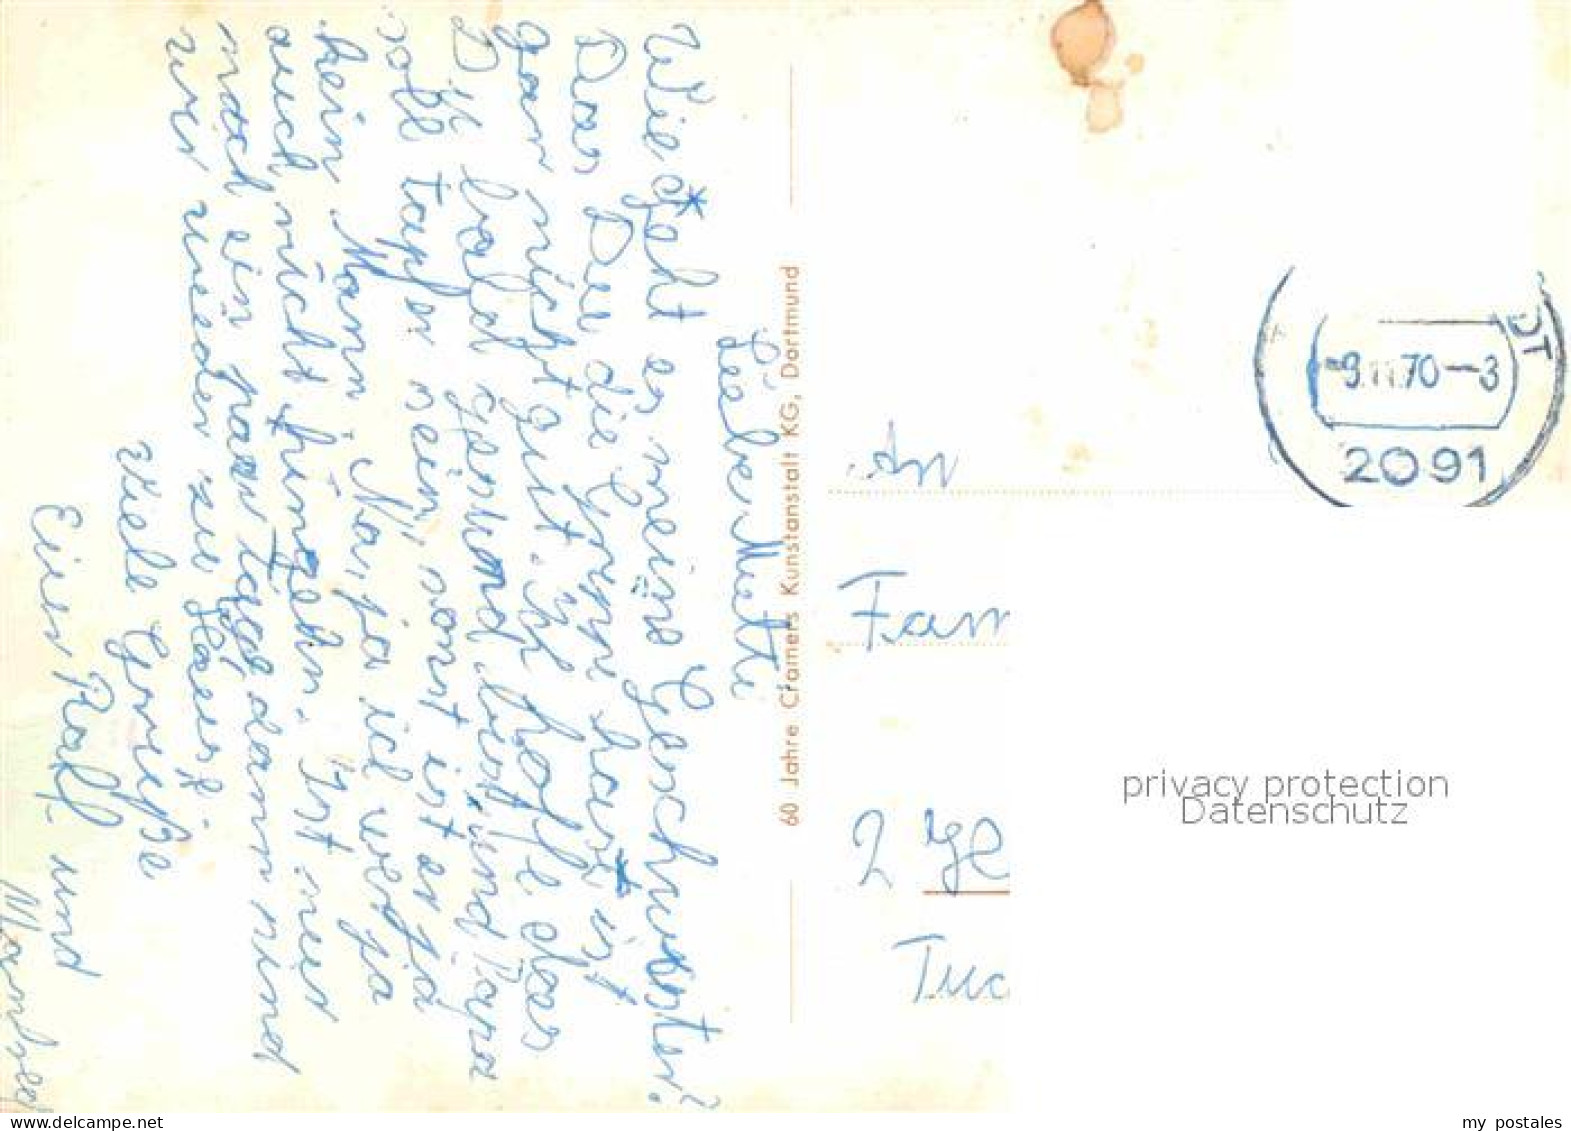 Liebe Mutti
Wie geht es meine Geschwister?
Das Du die Grippe hast, ist
gar nicht gut. Ich hoffe das
Du bald gesund bist, und Papa
soll tapfer sein, sonst ist er ja
kein Mann. Na, ja ich werd ja
auch nicht hungern. Ist nur
noch ein paar Tage dann sind
wir wieder zu Haus.
Viele Grüße
Euer Ralf und
Manfred
60 Jahre Cramers Kunstanstalt KG, Dortmund
An
Fam
2
Tuc
-9.11.70--3
2091
privacy protection
Datenschutz
www.delcampe.net
my_postales